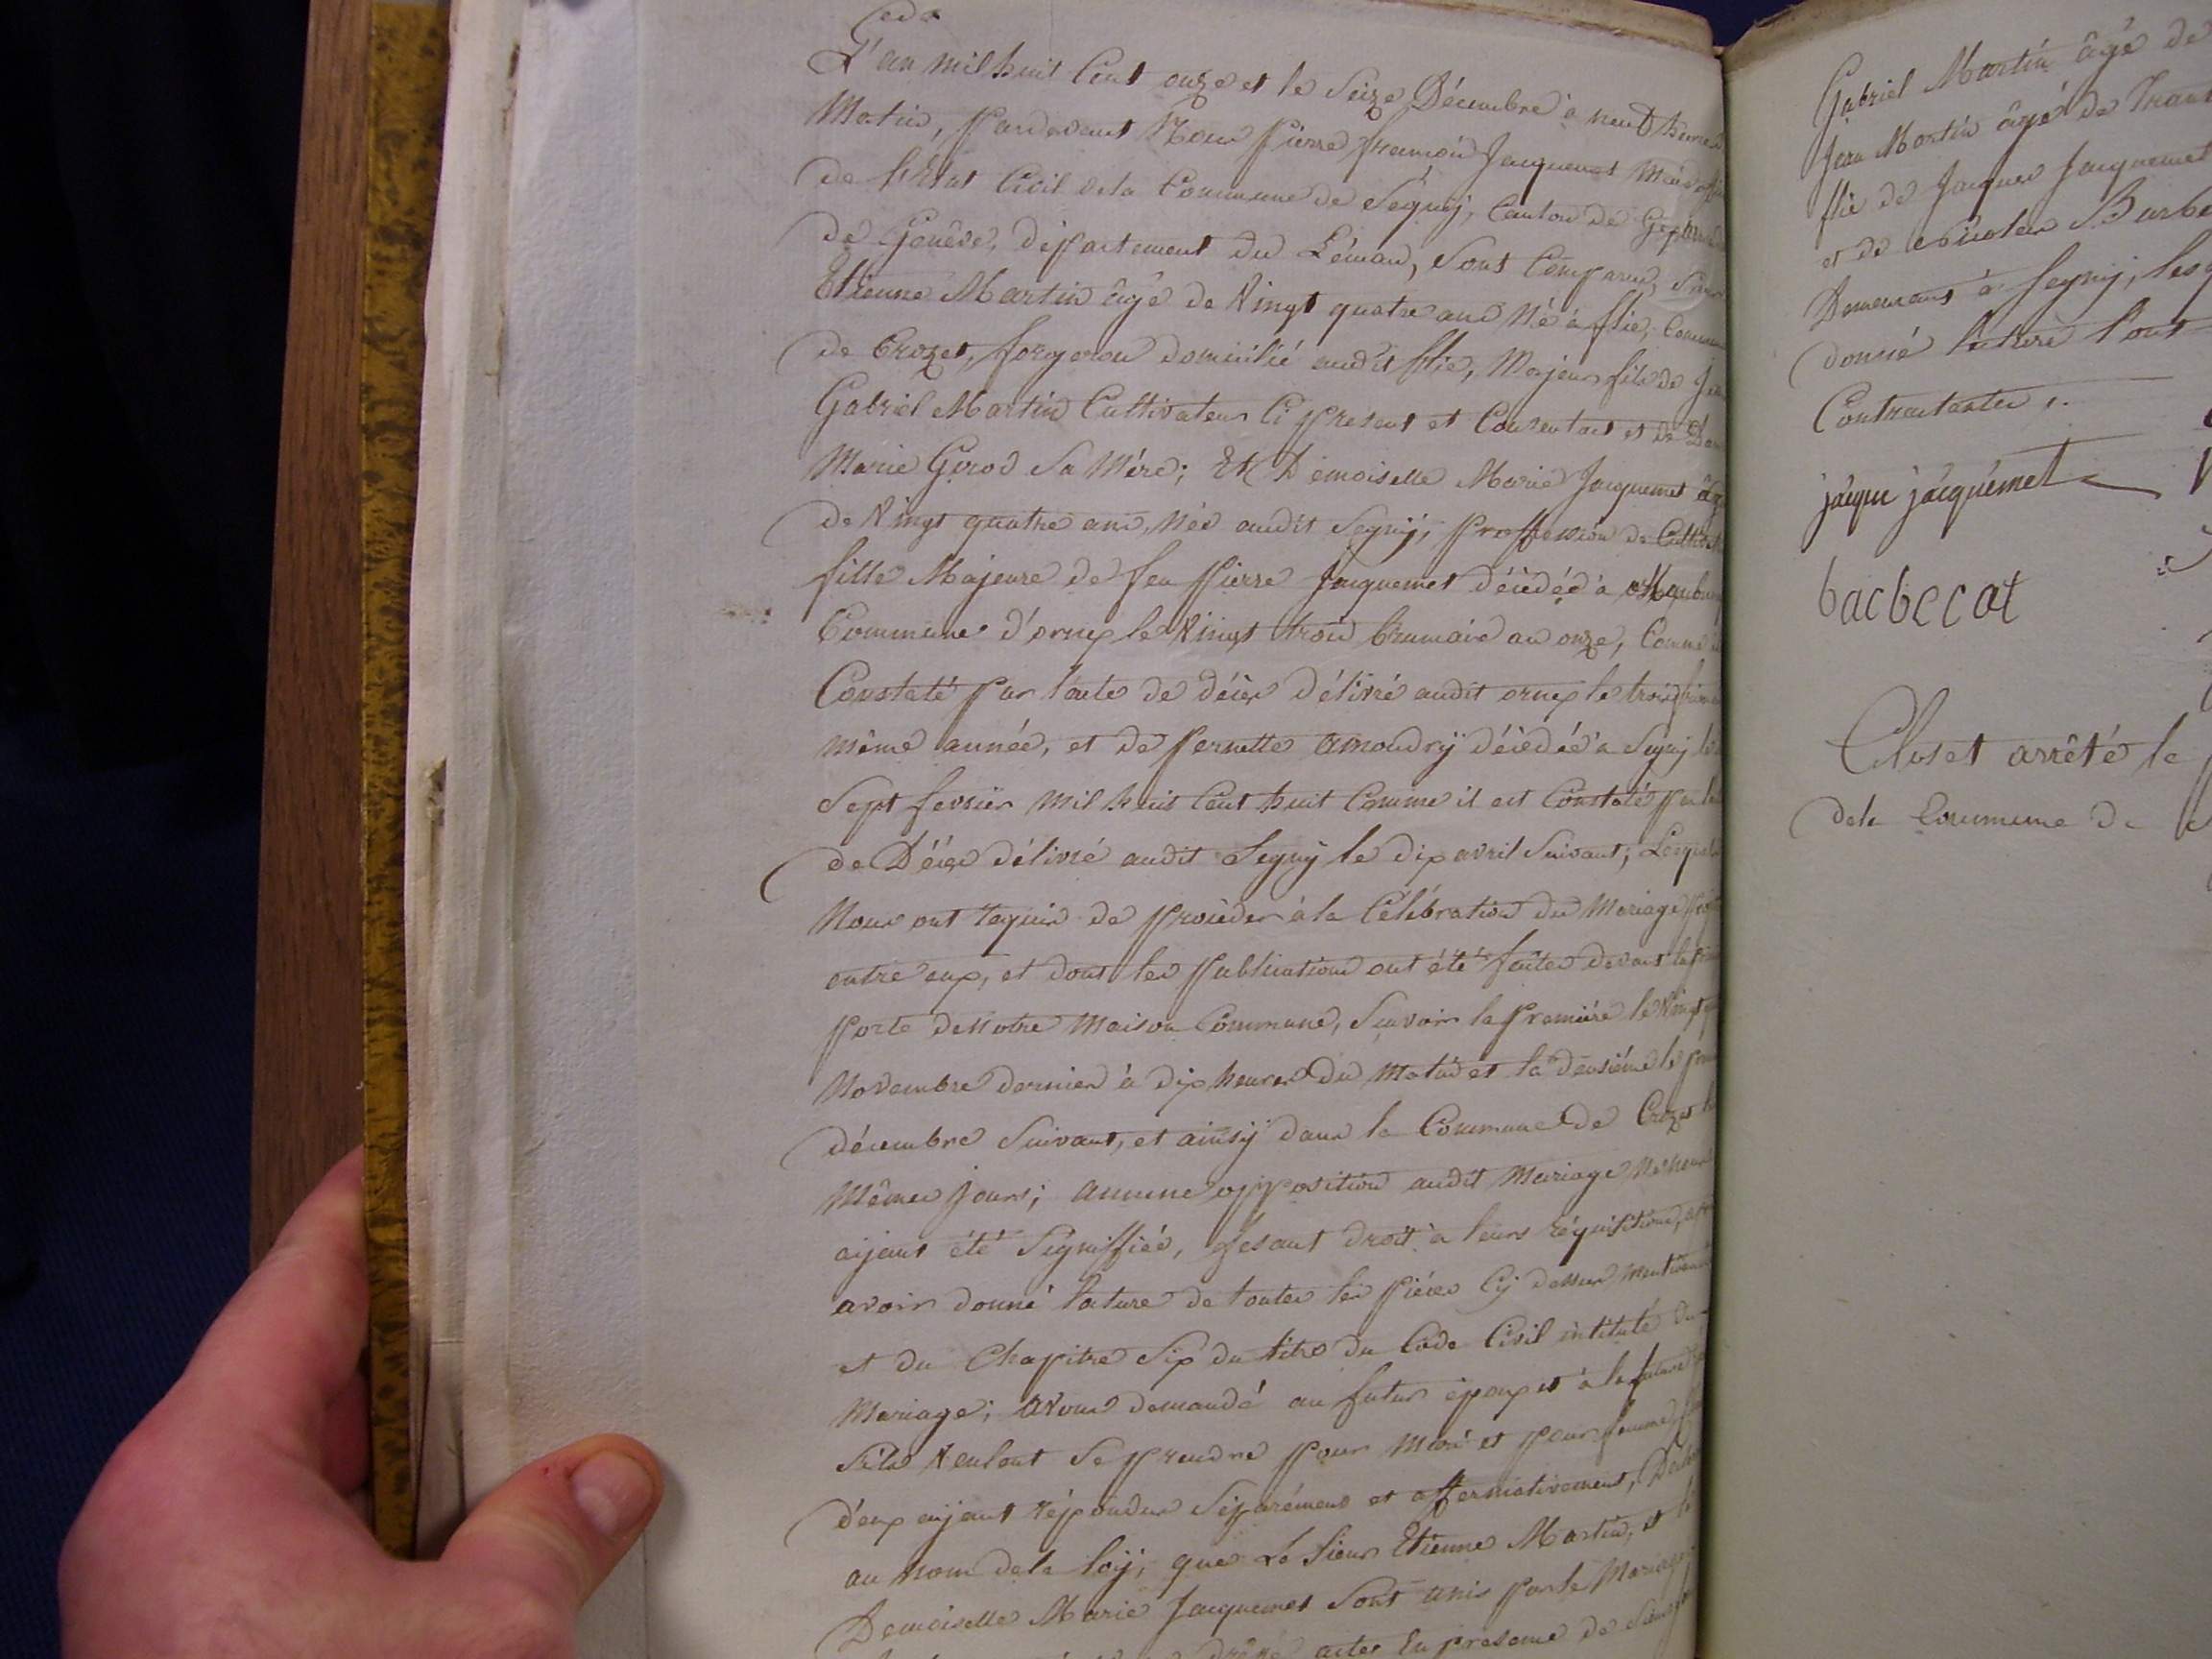 L'an mil huit Cent onze et le Seize Décembre à neuf heures
Matin, Pardevant Nous Pierre françois Jacquemet Maire
de l'Etat Civil de la Commune de Ségny, Canton de Gex
de Genêve, département du Léman, Sont Comparus,
Etienne Martin âgé de Vingt quatre ans Né à flie,
de Crozet, forgeron domicilié audit flie, Majeur fils de
Gabriel Martin Cultivateur Ci present et Consentant et de
Marie Girod Sa Mére; Et Demoiselle Marie Jacquemet
de Vingt quatre ans, Née audit Segnÿ, Proffession de
fille Majeure de feu Pierre Jacquemet décédée à
Commune d'ornex le Vingt trois brumaire an onze, Comme
Constaté par l'acte de décès délivré audit ornex le trois
même année, et de Pernette Amoudrÿ décédée à Segnÿ le
Sept fevrier Mil huit Cent huit Comme il est Constaté par
de Décès délivré audit Segnÿ le dix avril Suivant;
Nous ont requis de procéder à la Célébration du Mariage
entre eux, et dont les Publications ont été faites devant la
Porte de Notre Maison Commune, Scavoir la Premiére le Vingt
Novembre dernier à dix heures du Matin et la deusiéme le
décembre Suivant, et ainsÿ dans la Commune de Crozet
Mêmes Jours; aucune opposition audit Mariage Ne
aÿant été Signiffiée, fesant droit à leurs réquisitions,
avoir donné lecture de toutes les Piéces Cÿ dessus
et du Chapitre Six du titre du Code Civil intitulé du
Mariage; avons demandé au futur époux et à la future
S'ils Veulent Se prendre pour Mari et pour femme,
d'eux aÿant répondus Séparément et affermativement,
au Nom de la loÿ, que Le Sieur Etienne Martin, et
Demoiselle Marie Jacquemet Sont unis par le Mariage
acte En presence de
Gabriel Martin âgé de
Jean Martin âgé de
flie de Jacques Jacquemet
et de Nicolas
Demeurans à Segnÿ,
donné lecture l'ont
Contractantes.
jacque jacquémet
bacbecat
Clos et arrêté le
de la Commune de